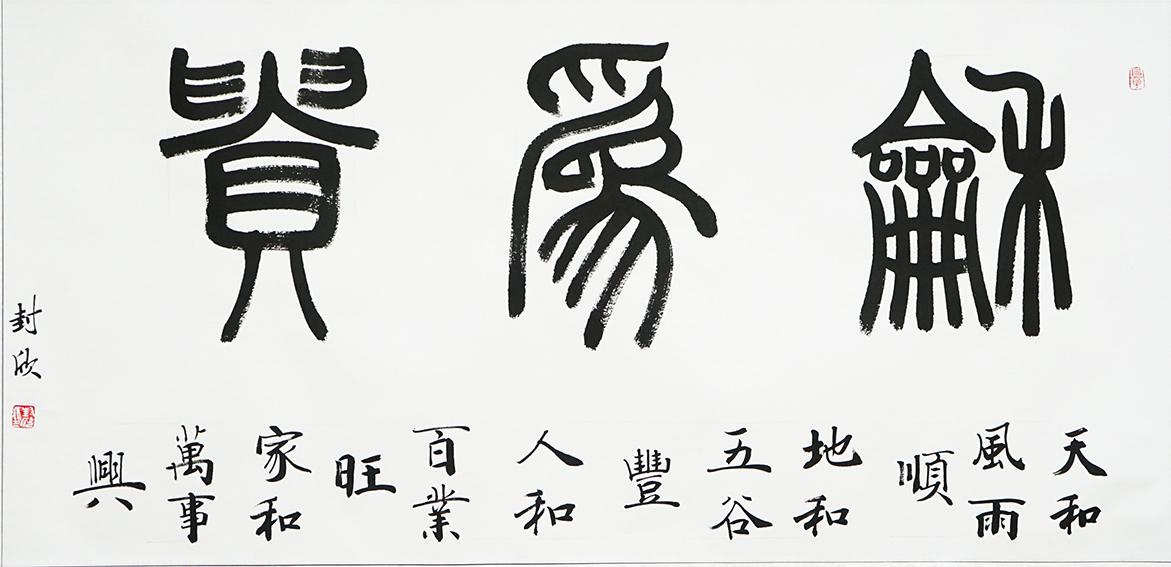 龢爲貴
天和
風雨
順
地和
五谷
豐
人和
百業
旺
家和
萬事
興
封欣